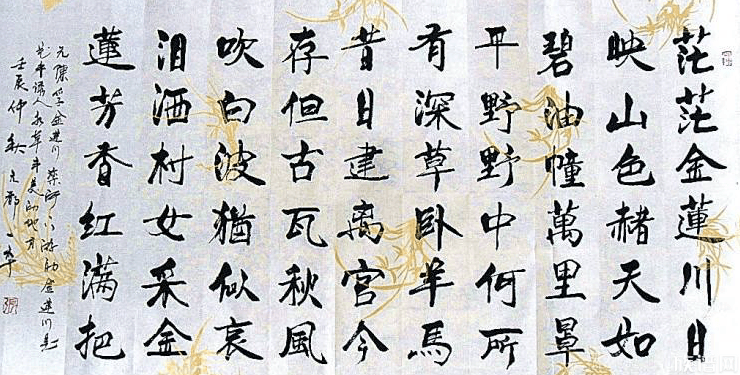 茫茫金蓮川日
映山色赭天如
碧油幢萬里罩
平野野中何所
有深草卧羊馬
昔日建离宫今
存但古瓦秋風
吹白波猶似哀
泪洒村女采金
蓮芳香红满把
元陳孚金蓮川 金蓮川是
誘人水草丰美的地方
壬辰仲秋